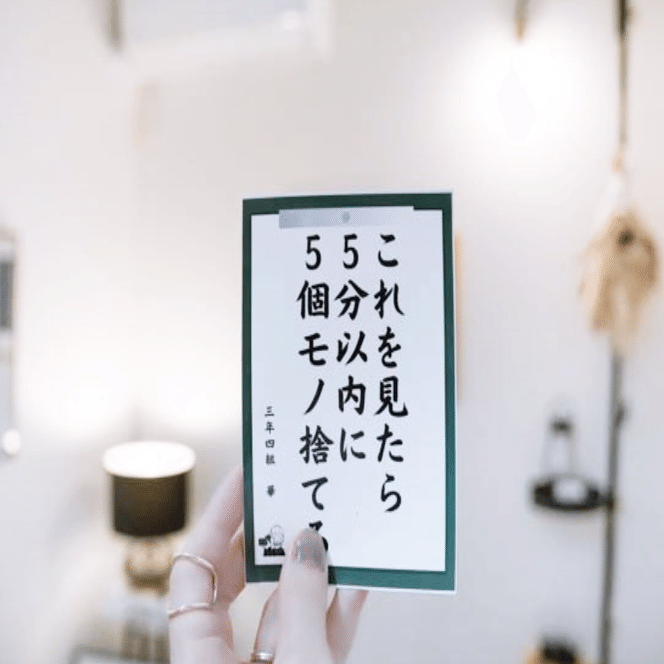 これを見たら
5分以内に
5個モノ捨てる
三年四組 華